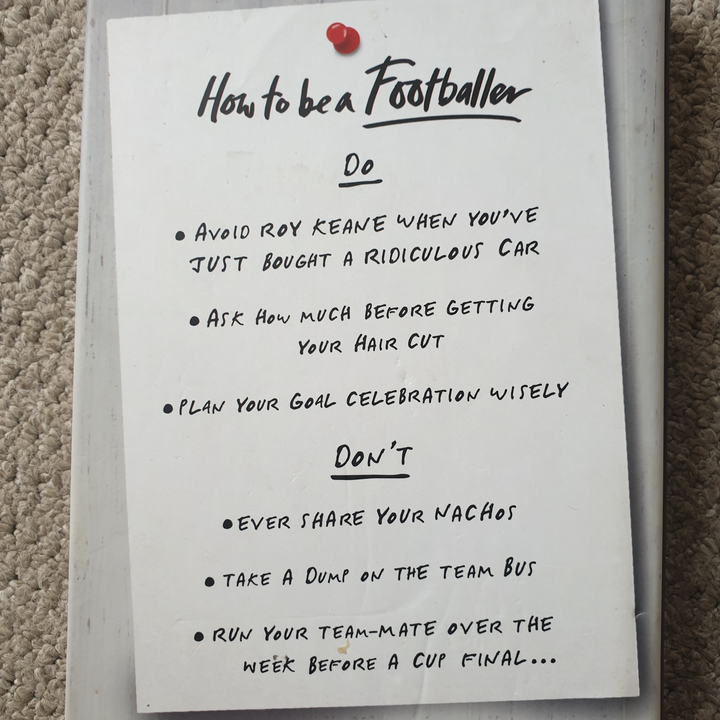 How to be a Footballer
Do
• AVOID ROY KEANE WHEN YOU'VE
JUST BOUGHT A RIDICULOUS CAR
• ASK HOW MUCH BEFORE GETTING
YOUR HAIR CUT
• PLAN YOUR GOAL CELEBRATION WISELY
DON'T
• EVER SHARE YOUR NACHOS
• TAKE A DUMP ON THE TEAM BUS
• RUN YOUR TEAM-MATE OVER THE
WEEK BEFORE A CUP FINAL...